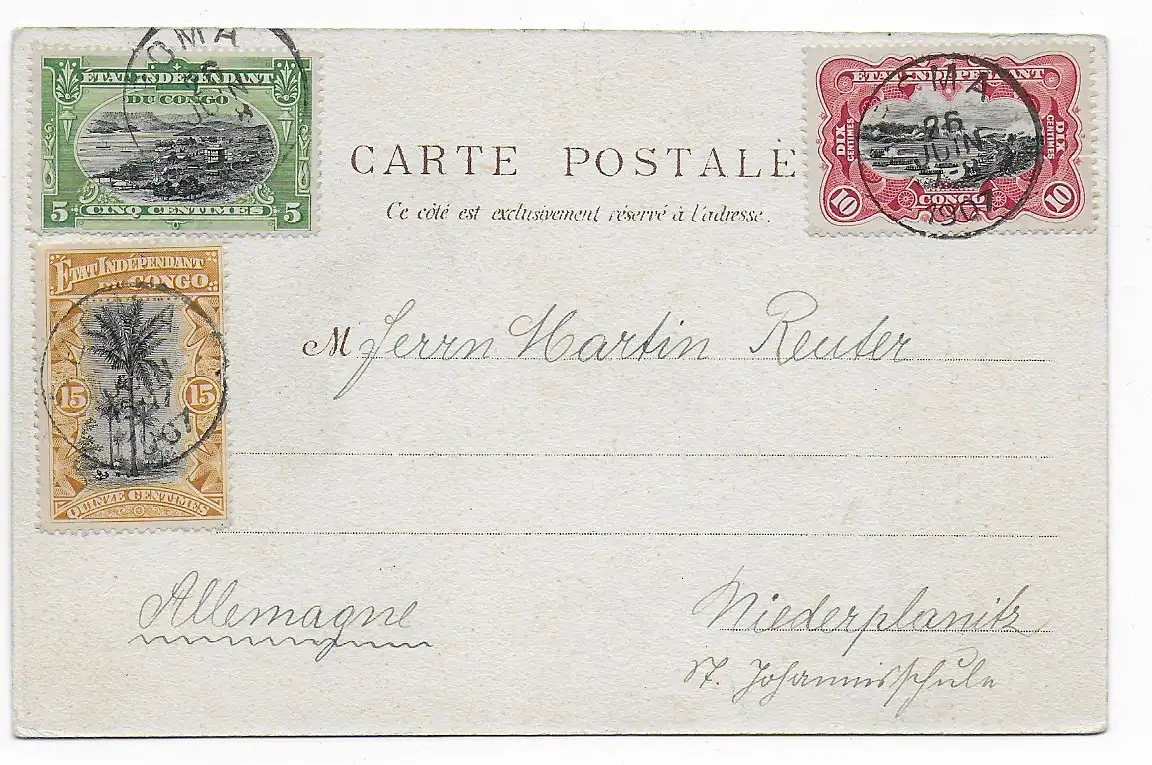 OMA
26
JUIN
ÉTAT INDÉPENDANT
DU CONGO
5 CINQ CENTIMES 5
ÉTAT INDÉPENDANT
DIX CENTIMES
DIX CENTIMES
10 CONGO 10
MA
26
JUIN
1907
CARTE POSTALE
Ce côté est exclusivement réservé à l'adresse.
ÉTAT INDÉPENDANT
DU CONGO
15 15
JUIN
1907
QUINZE CENTIMES
M Herrn Martin Reuter
Allemagne
Niederplanitz
St. Johannisschule